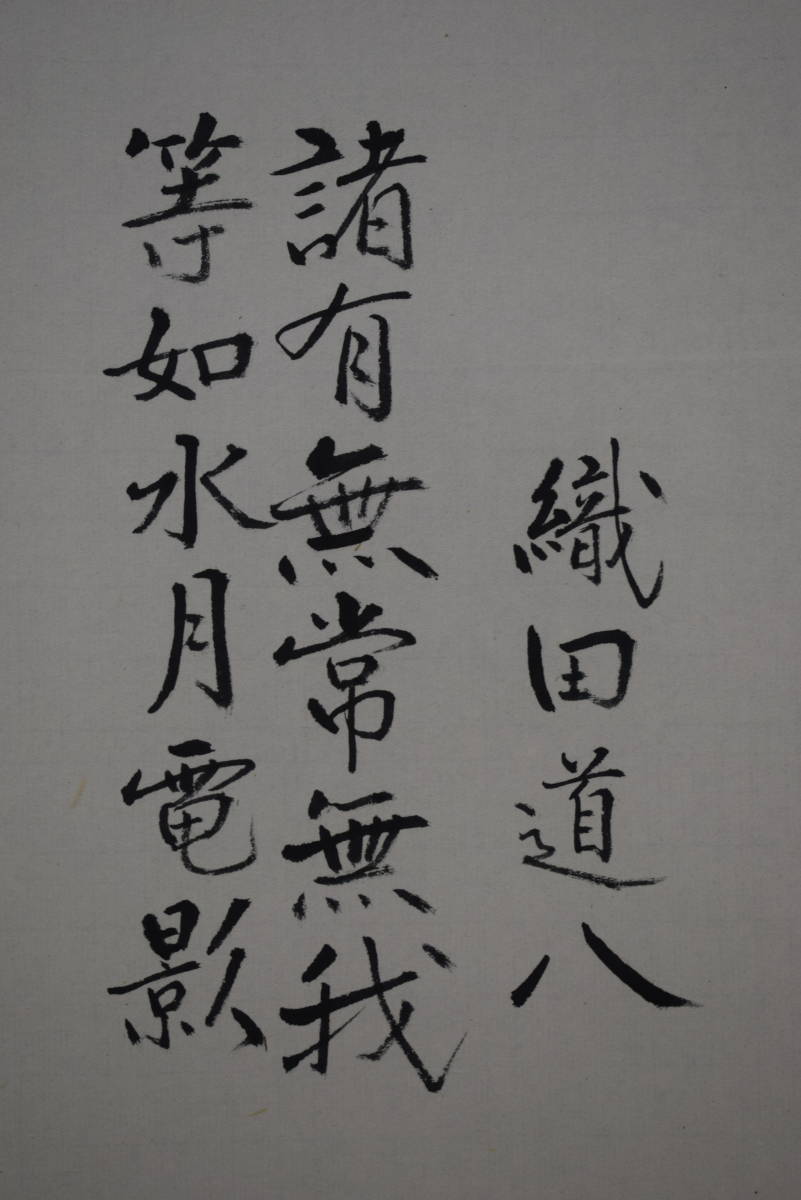 織田道八
諸有無常無我
等如水月電影